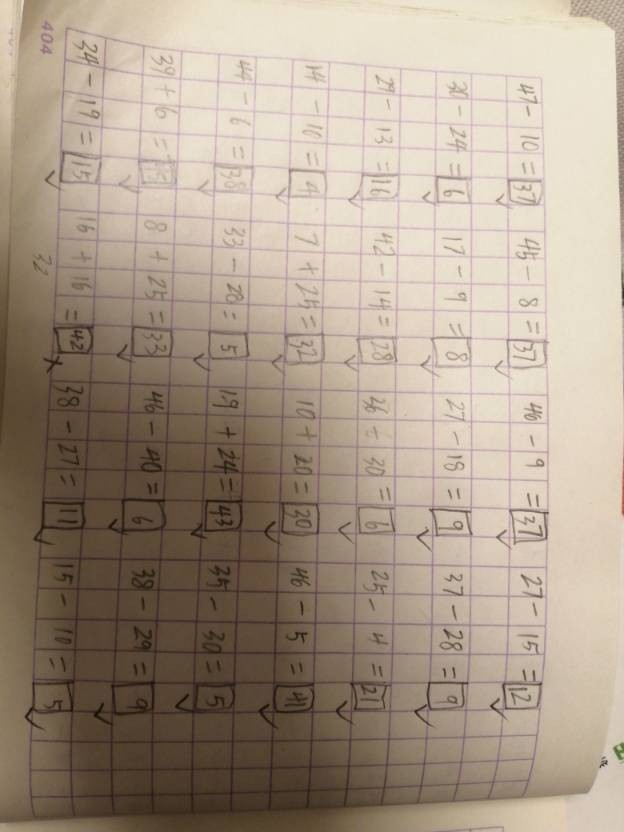 47 - 10 = 37 45 - 8 = 37 46 - 9 = 37 27 - 15 = 12
30 - 24 = 6 17 - 9 = 8 27 - 18 = 9 37 - 28 = 9
29 - 13 = 16 42 - 14 = 28 36 ÷ 30 = 6 25 - 4 = 21
14 - 10 = 4 7 + 25 = 32 10 + 20 = 30 46 - 5 = 41
44 - 6 = 38 33 - 28 = 5 19 + 24 = 43 35 - 30 = 5
39 + 6 = 8 + 25 = 33 46 - 40 = 6 38 - 29 = 9
34 - 19 = 15 16 + 16 = 42 38 - 27 = 11 15 - 10 = 5
32
404